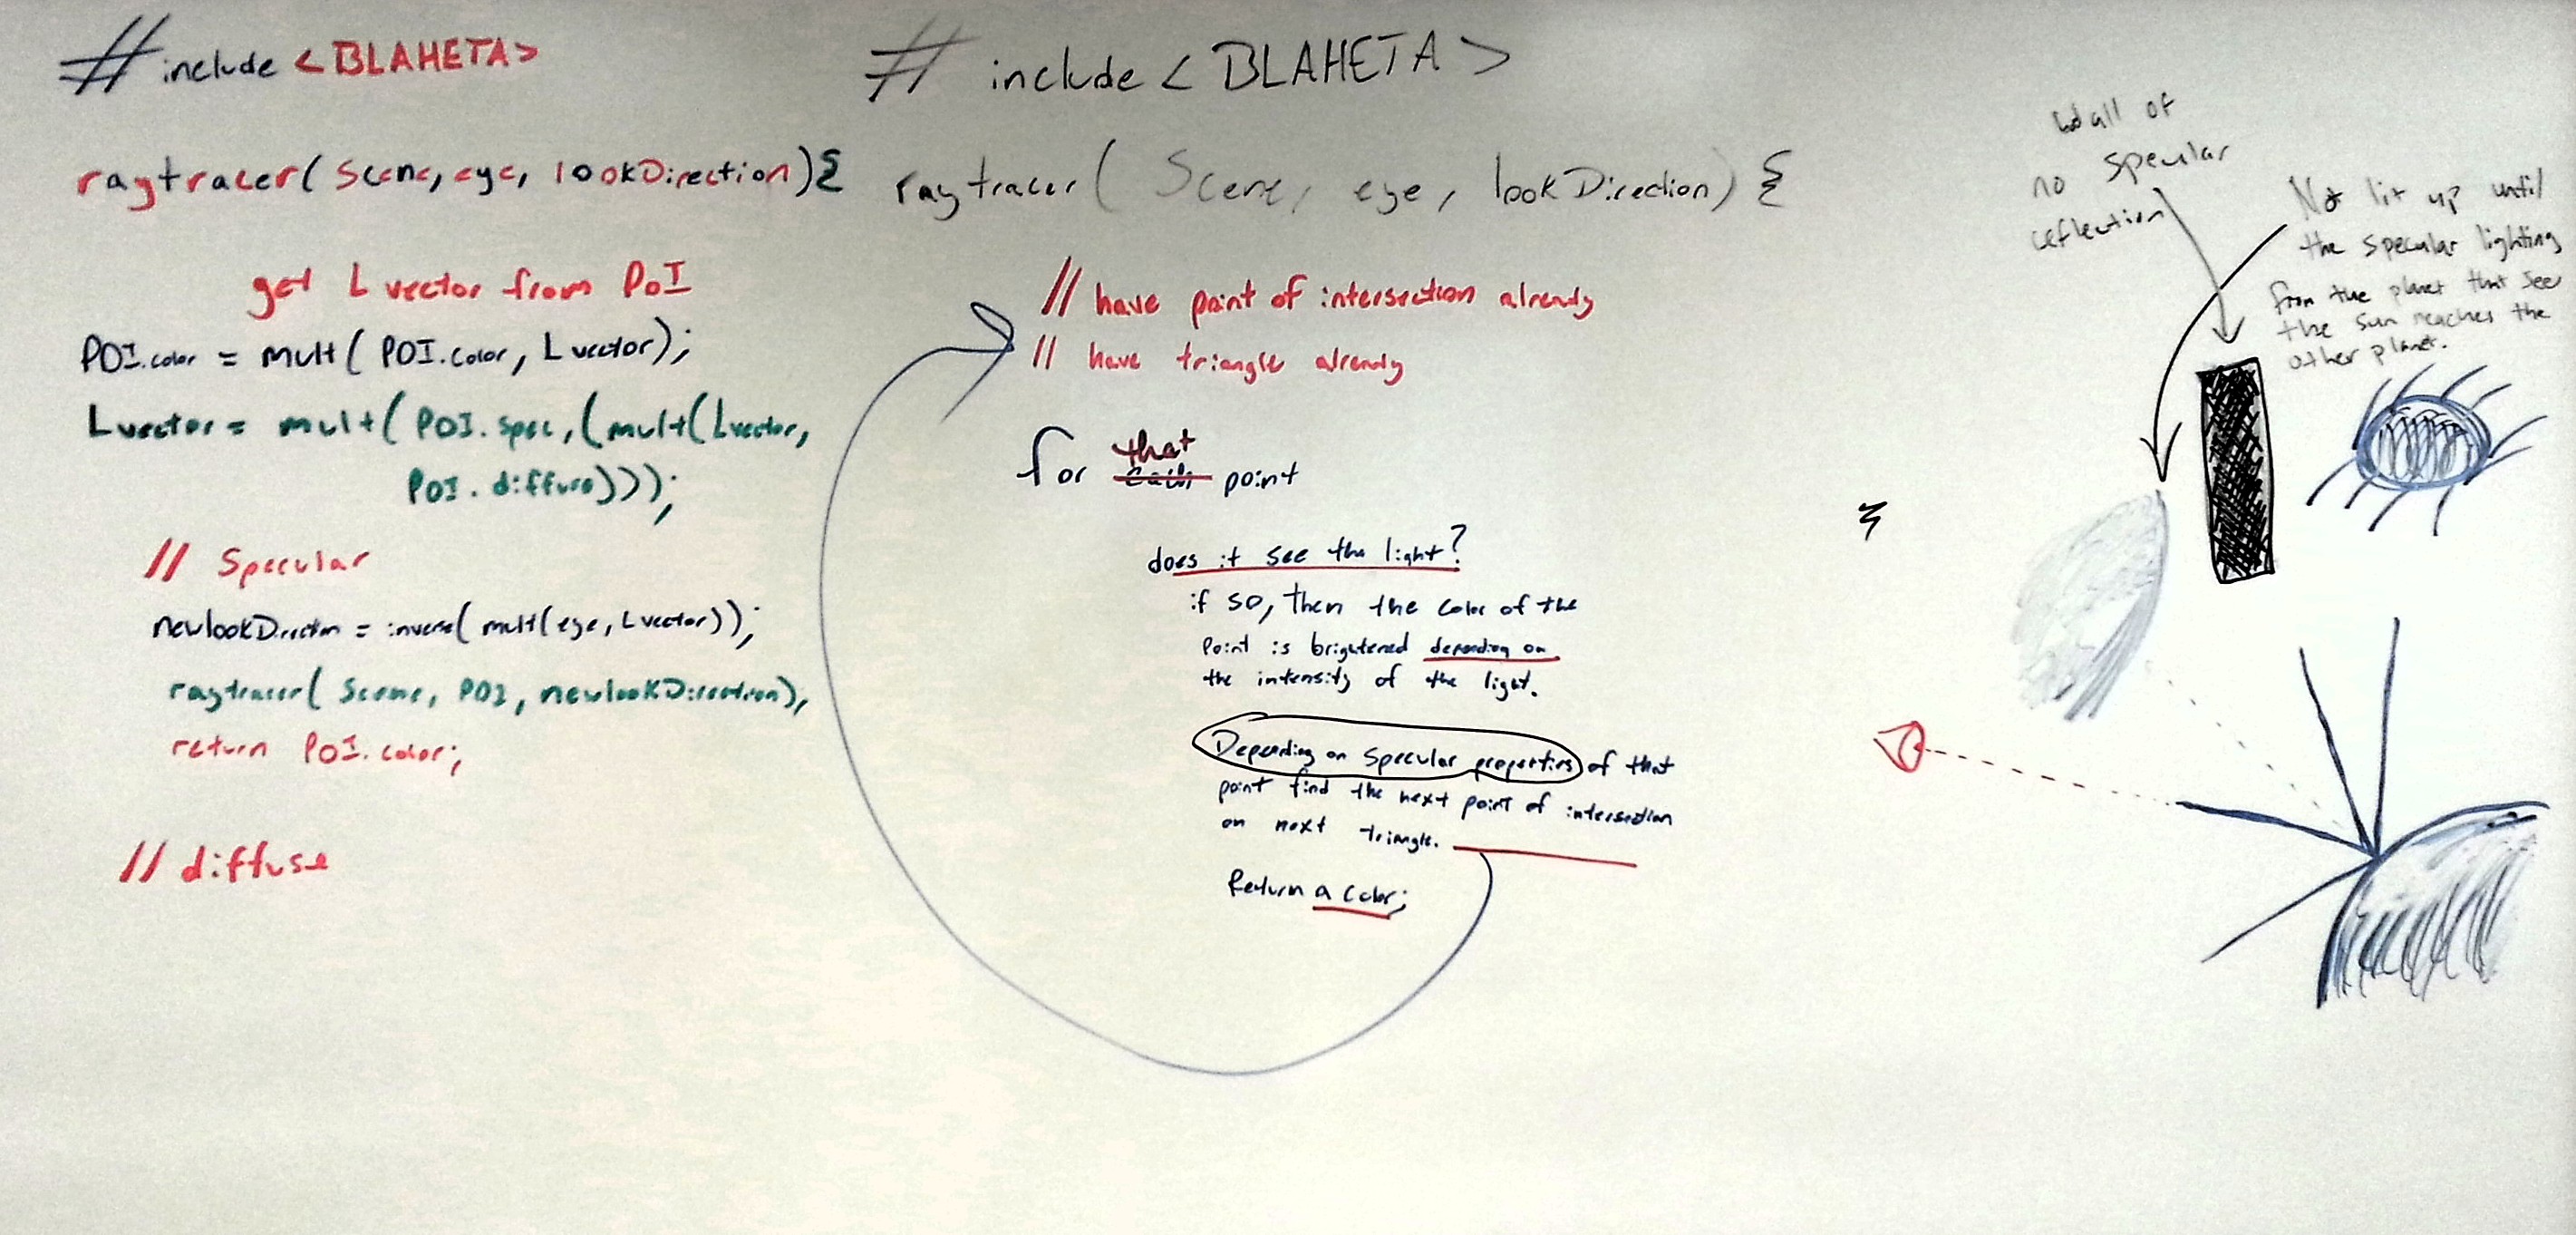 # include <BLAHETA>
raytracer( Scene, eye, lookDirection){
get L vector from PoI
POI.color = mult( POI.color, Lvector);
Lvector = mult( POI.spec, (mult(Lvector,
POI.diffuse)));
// Specular
newlookDirection = inverse( mult(eye, Lvector));
raytracer( Scene, POI, newlookDirection),
return POI.color;
// diffuse
# include < BLAHETA >
raytracer( Scene, eye, lookDirection) {
// have point of intersection already
// have triangle already
that
for each point
does it see the light?
if so, then the color of the
Point is brightened depending on
the intensity of the light.
Depending on specular properties of that
point find the next point of intersection
on next triangle.
Return a color;
}
wall of
no specular
reflection
Not lit up until
the specular lighting
from the planet that see
the sun reaches the
other planet.